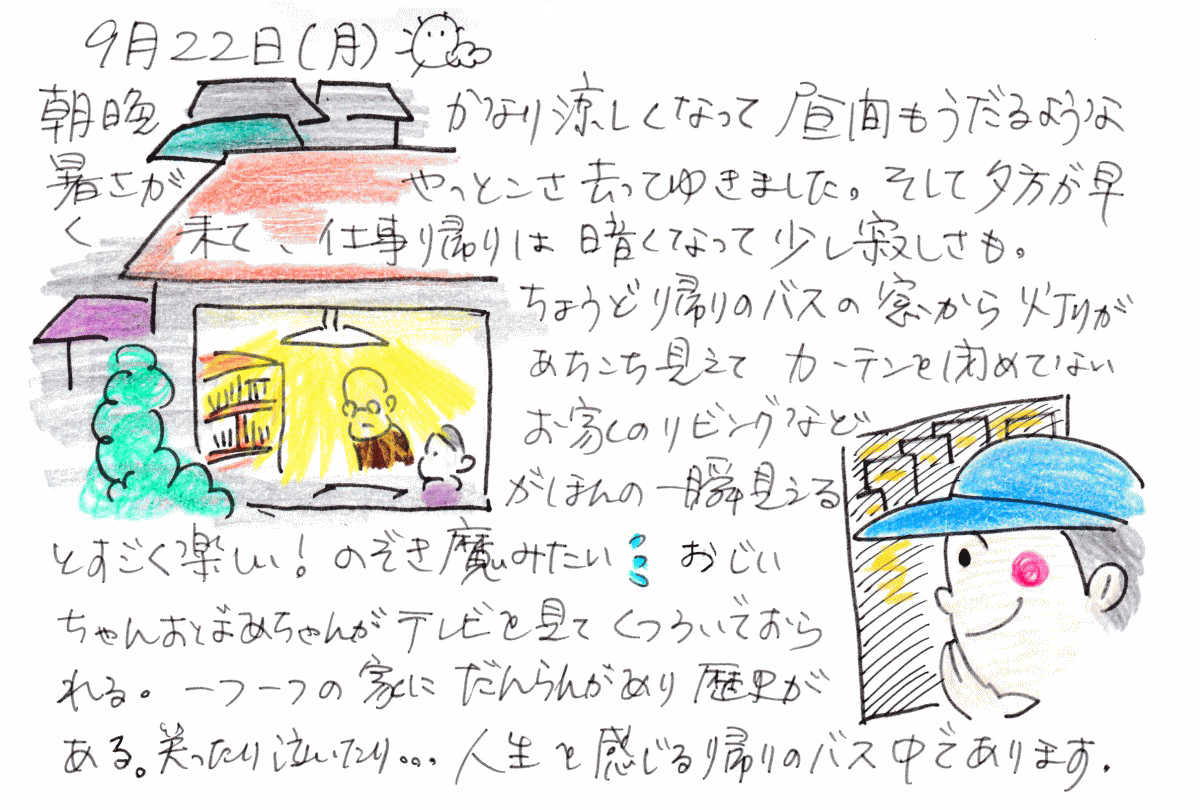 9月22日(月)
朝晩 かなり涼しくなって 昼間もうだるような
暑さが やっとこさ 去ってゆきました。そして 夕方が早
く 来て、仕事帰りは 暗くなって 少し寂しさも。
ちょうど帰りのバスの窓から 灯りが
あちこち見えて カーテンを閉めてない
お家のリビングなど
がほんの一瞬見える
とすごく楽しい!のぞき魔みたい おじい
ちゃんおばあちゃんが テレビを見て くつろいでおら
れる。一つ一つの 家に だんらんがあり 歴史が
ある。笑ったり泣いたり... 人生を感じる帰りのバス中であります.